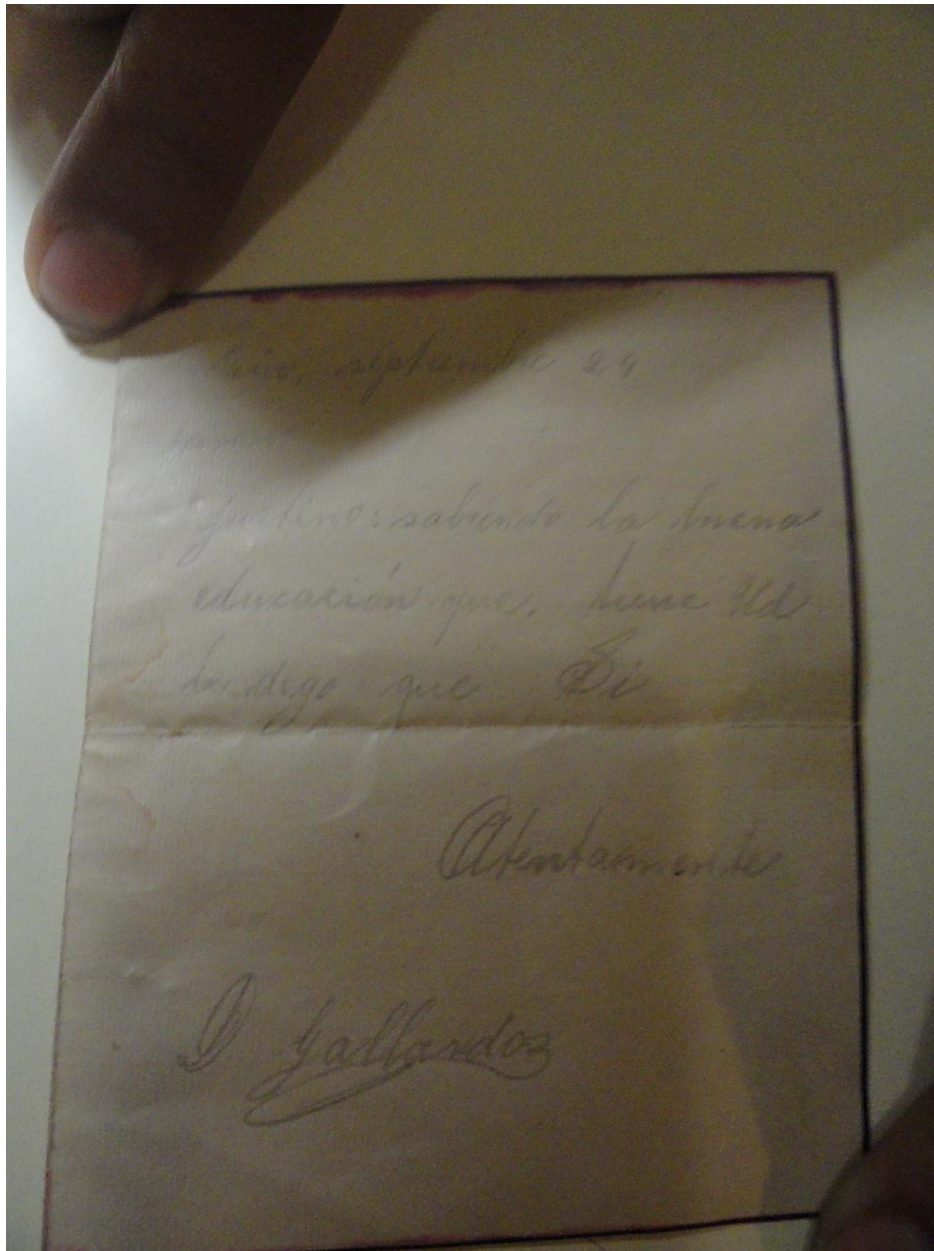 septiembre 24
Justino: sabiendo la buena
educación que. tiene Ud
le digo que Si
Atentamente
D Gallardoz